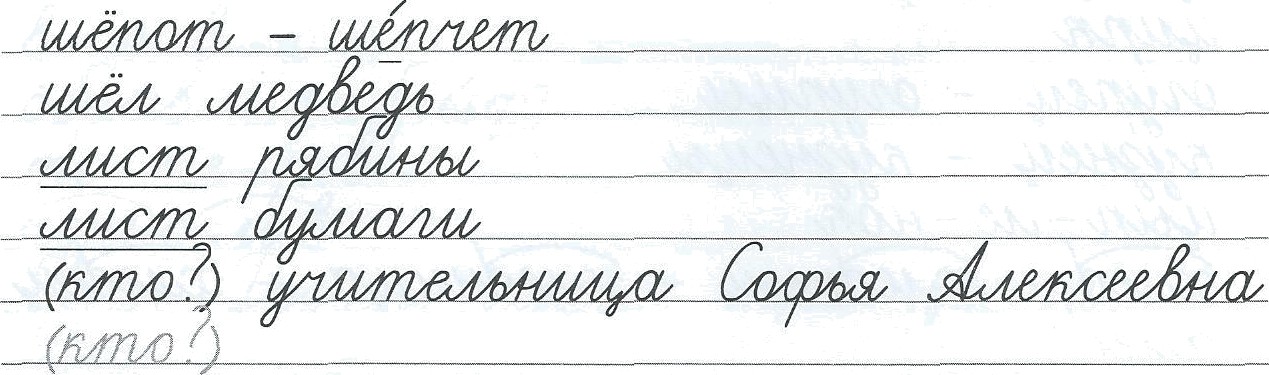 шёпот – ше́пчет
шёл медведь
лист рябины
лист бумаги
(кто?) учительница Софья Алексеевна
(кто?)